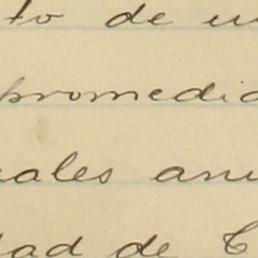 to de un
promedio
ales anu
dad de C